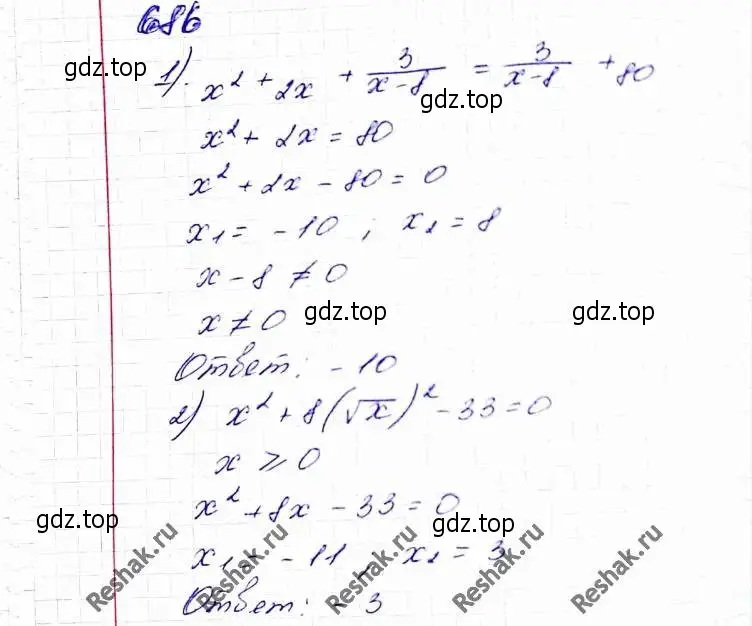 686
gdz.top
1). x² + 2x + 3/(x-8) = 3/(x-8) + 80
gdz.top
x² + 2x = 80
x² + 2x - 80 = 0
x₁ = -10 ; x₂ = 8
x - 8 ≠ 0
x ≠ 0
gdz.top gdz.top
Ответ: -10
2) x² + 8(√x)² - 33 = 0
x ⩾ 0
x² + 8x - 33 = 0
gdz.top gdz.top
x₁ = -11, x₂ = 3
Ответ: - 3
Reshak.ru Reshak.ru Reshak.ru Reshak.ru Reshak.ru